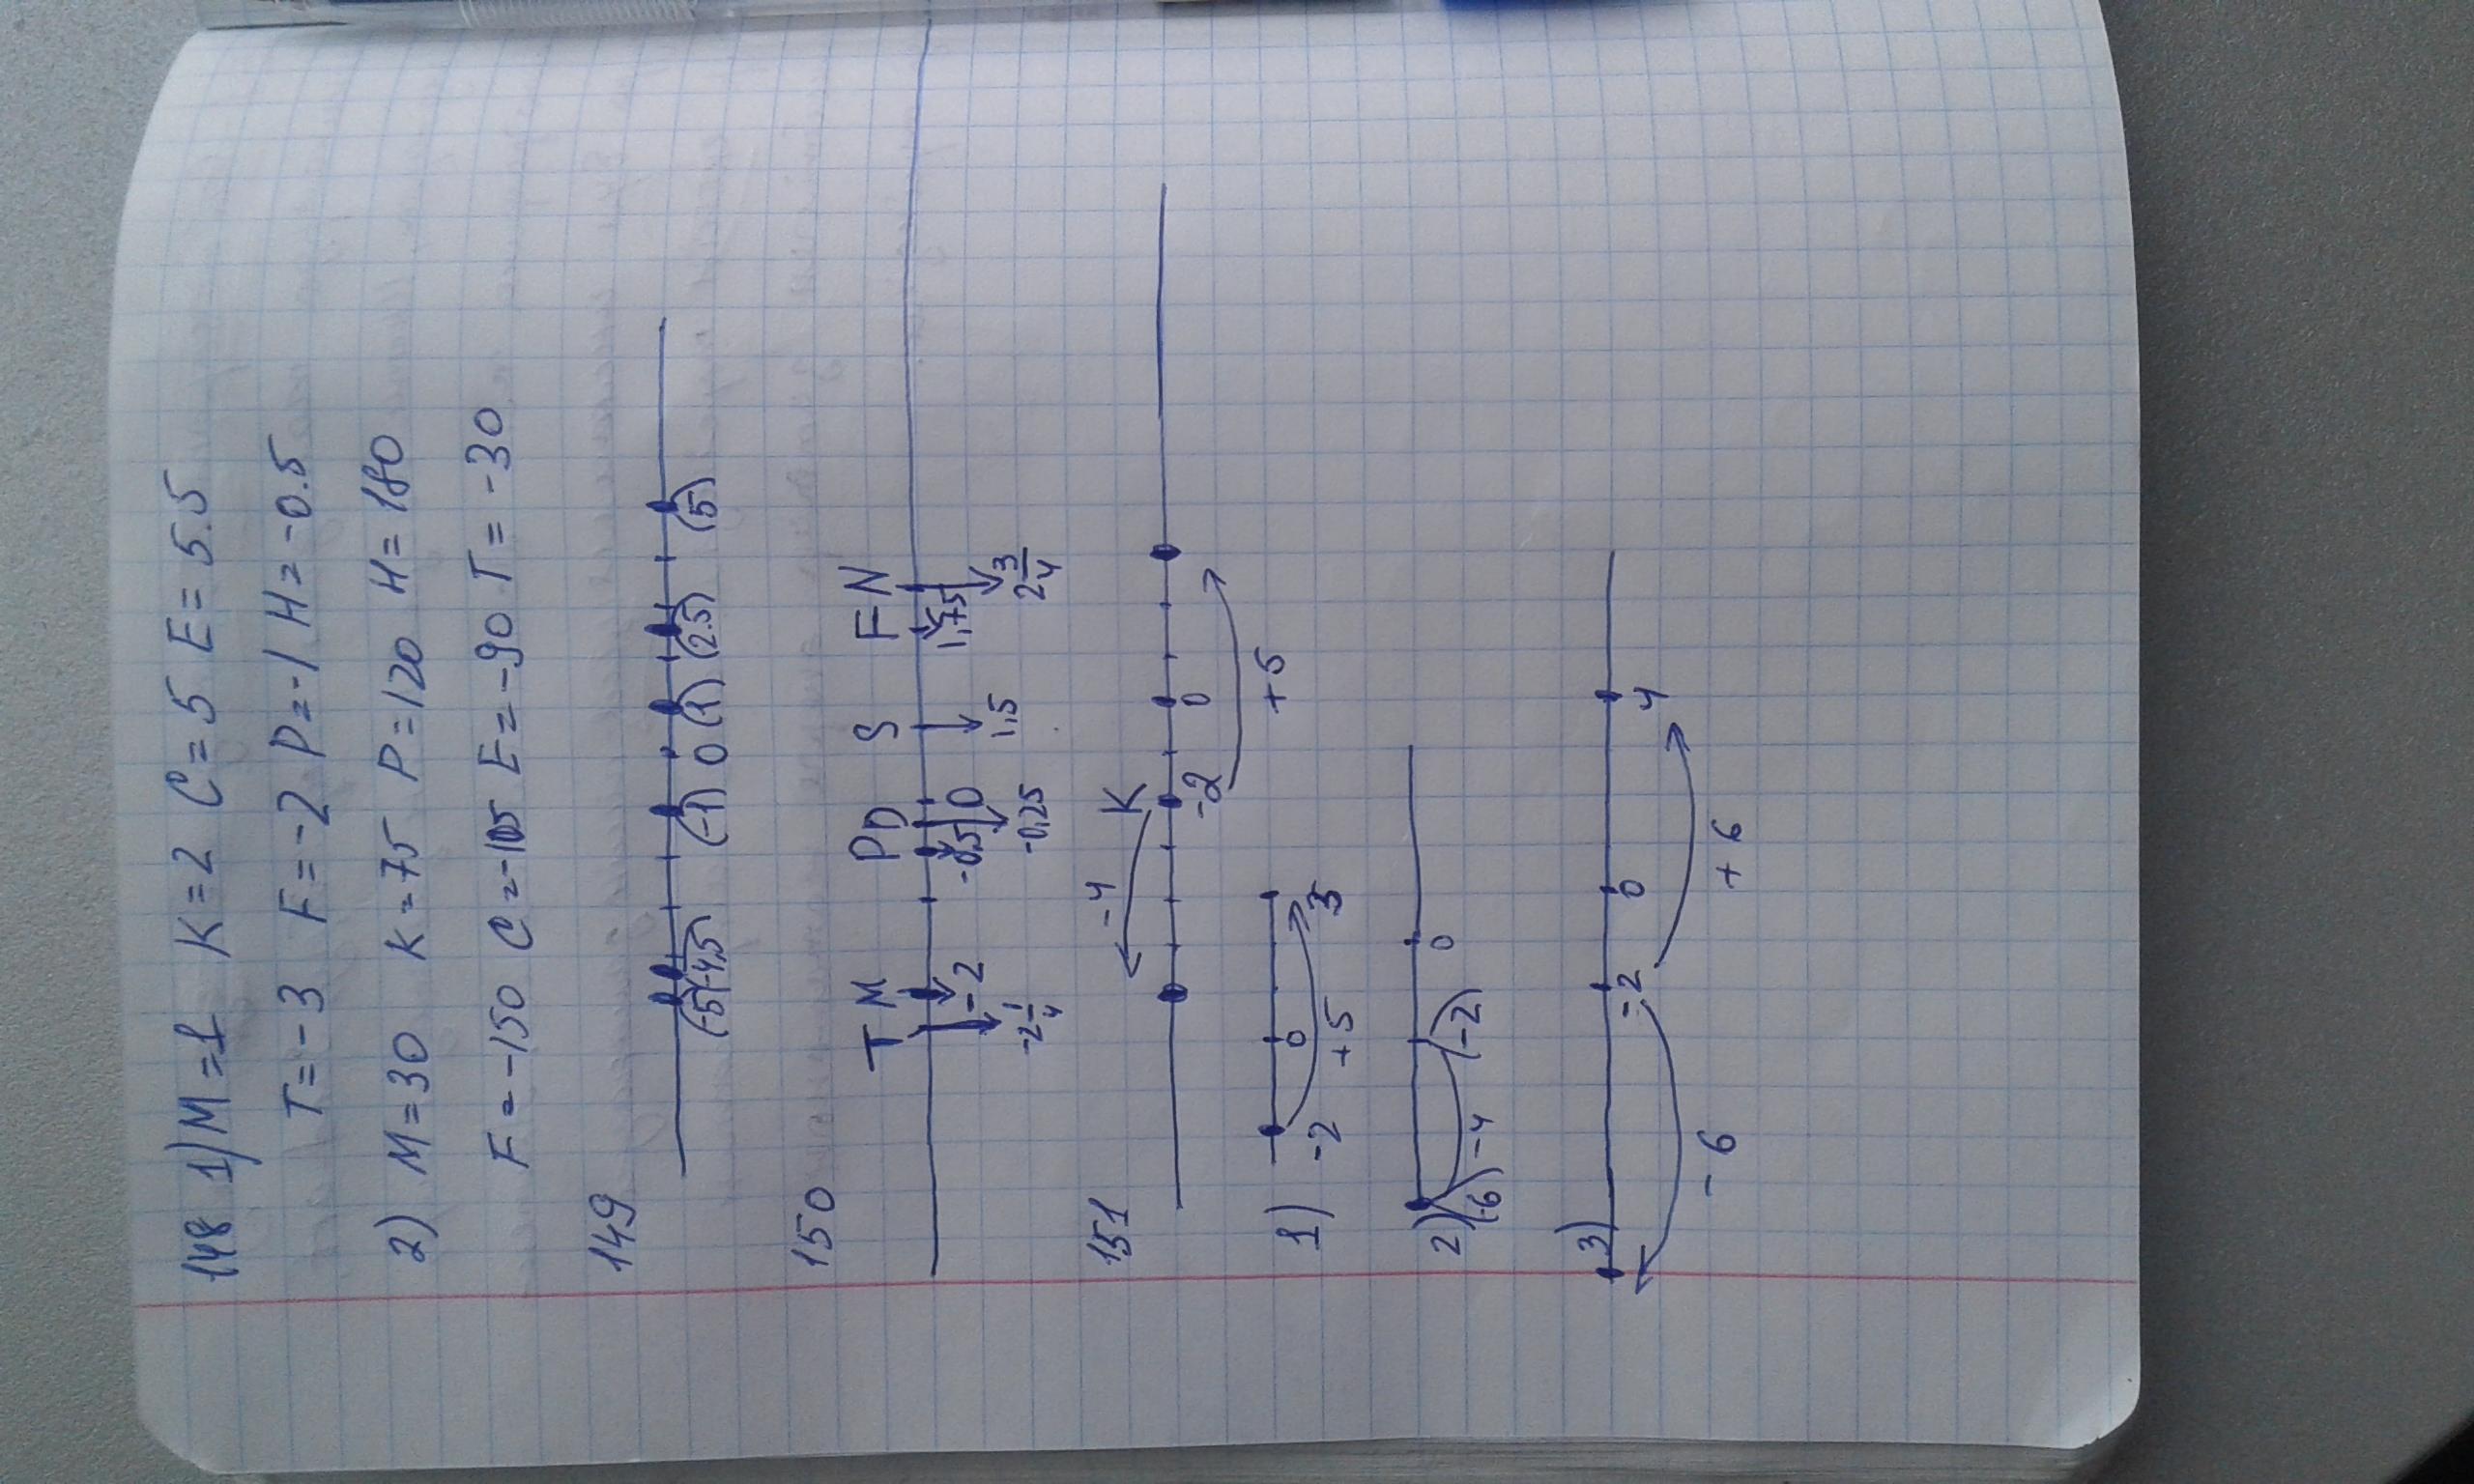 148 1) M=1 K=2 C=5 E=5.5
T=-3 F=-2 P=-1 H=-0.5
2) M=30 K=75 P=120 H=180
F=-150 C=-105 E=-90 T=-30
149
(-5) (-4,5) (-1) 0 (1) (2.5) (5)
150
T M P D S F N
-2 1/4 -2 -0,5 -0,25 0 1,5 1,75 2 3/4
151
-4 K
-2 0
+5
1) -2 0 3
+5
2) (-6) -4 (-2) 0
3) -2 0 4
-6 +6